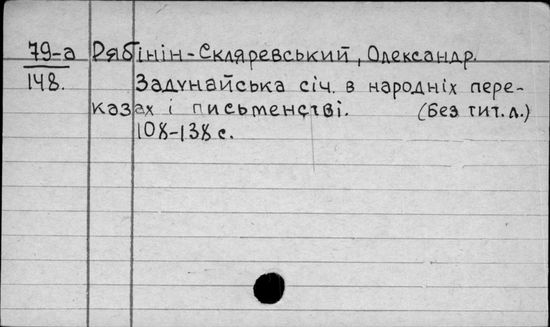 79-а Рябінін-Скляревський, Олександр.
148. Задунайська січ. в народніх пере-
казах і письменстві. (Без тит. л.)
108-138 с.